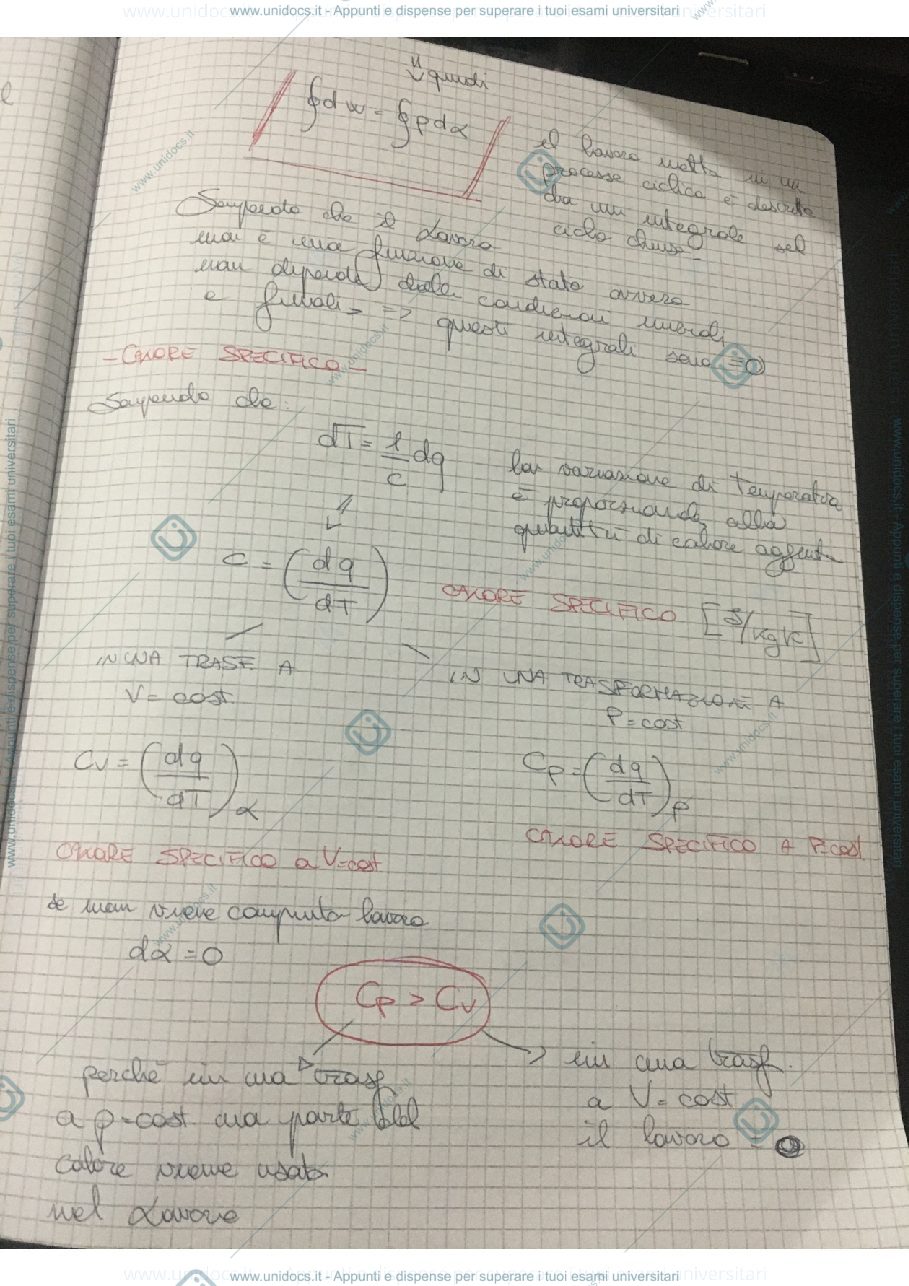 www.unidocs.it - Appunti e dispense per superare i tuoi esami universitari
quindi
∮dw = ∮pdα
il lavoro netto in un
processo ciclico è descritto
da un integrale sul
ciclo chiuso
Sapendo che il Lavoro
non è una funzione di stato ovvero
non dipende dalle condizioni iniziali
e finali => questi integrali sono = 0
- CALORE SPECIFICO -
Sapendo che:
dT = 1/c dq
la variazione di Temperatura
è proporzionale alla
quantità di calore aggiunta
c = (dq/dT)
CALORE SPECIFICO [J/kgK]
IN UNA TRASF A
V = cost
IN UNA TRASFORMAZIONE A
P = cost
Cv = (dq/dT)α
Cp = (dq/dT)p
CALORE SPECIFICO a V=cost
CALORE SPECIFICO A P=cost
se non viene compiuto lavoro
dα = 0
Cp > Cv
perchè in una trasf
a p=cost una parte del
calore viene usato
nel Lavoro
in una trasf.
a V=cost
il lavoro = 0
www.unidocs.it - Appunti e dispense per superare i tuoi esami universitari